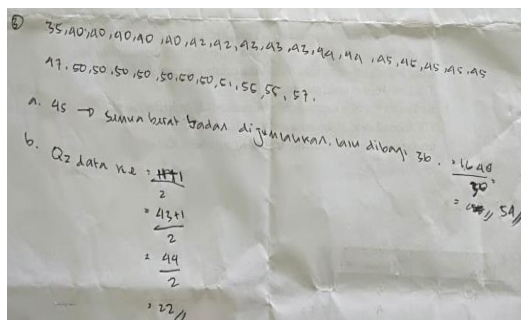 6 35,40,40,40,40,40,42,42,43,43,43,44,44,45,45,45,45,45
47,50,50,50,50,50,50,50,51,55,55,57.
a. 45 → semua berat badan dijumlahkan, lalu dibagi 36. = 1640
36
= 54
b. Q2 data ke = n+1
2
= 43+1
2
= 44
2
= 22